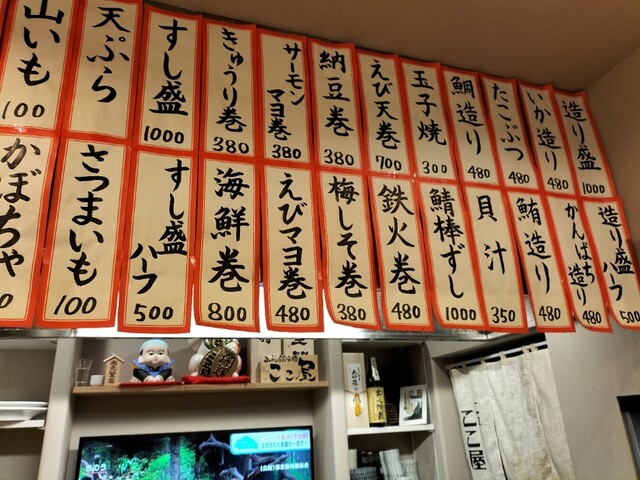 造り盛
1000
いか造り
480
たこぶつ
480
鯛造り
480
玉子焼
300
えび天巻
700
納豆巻
380
サーモン
マヨ巻
380
きゅうり巻
380
すし盛
1000
天ぷら
山いも
100
造り盛
ハーフ
500
かんぱち
造り
480
鮪造り
480
貝汁
350
鯖棒ずし
1000
鉄火巻
480
梅しそ巻
380
えびマヨ巻
480
海鮮巻
800
すし盛
ハーフ
500
さつまいも
100
かぼちゃ
ここ屋
ここ屋